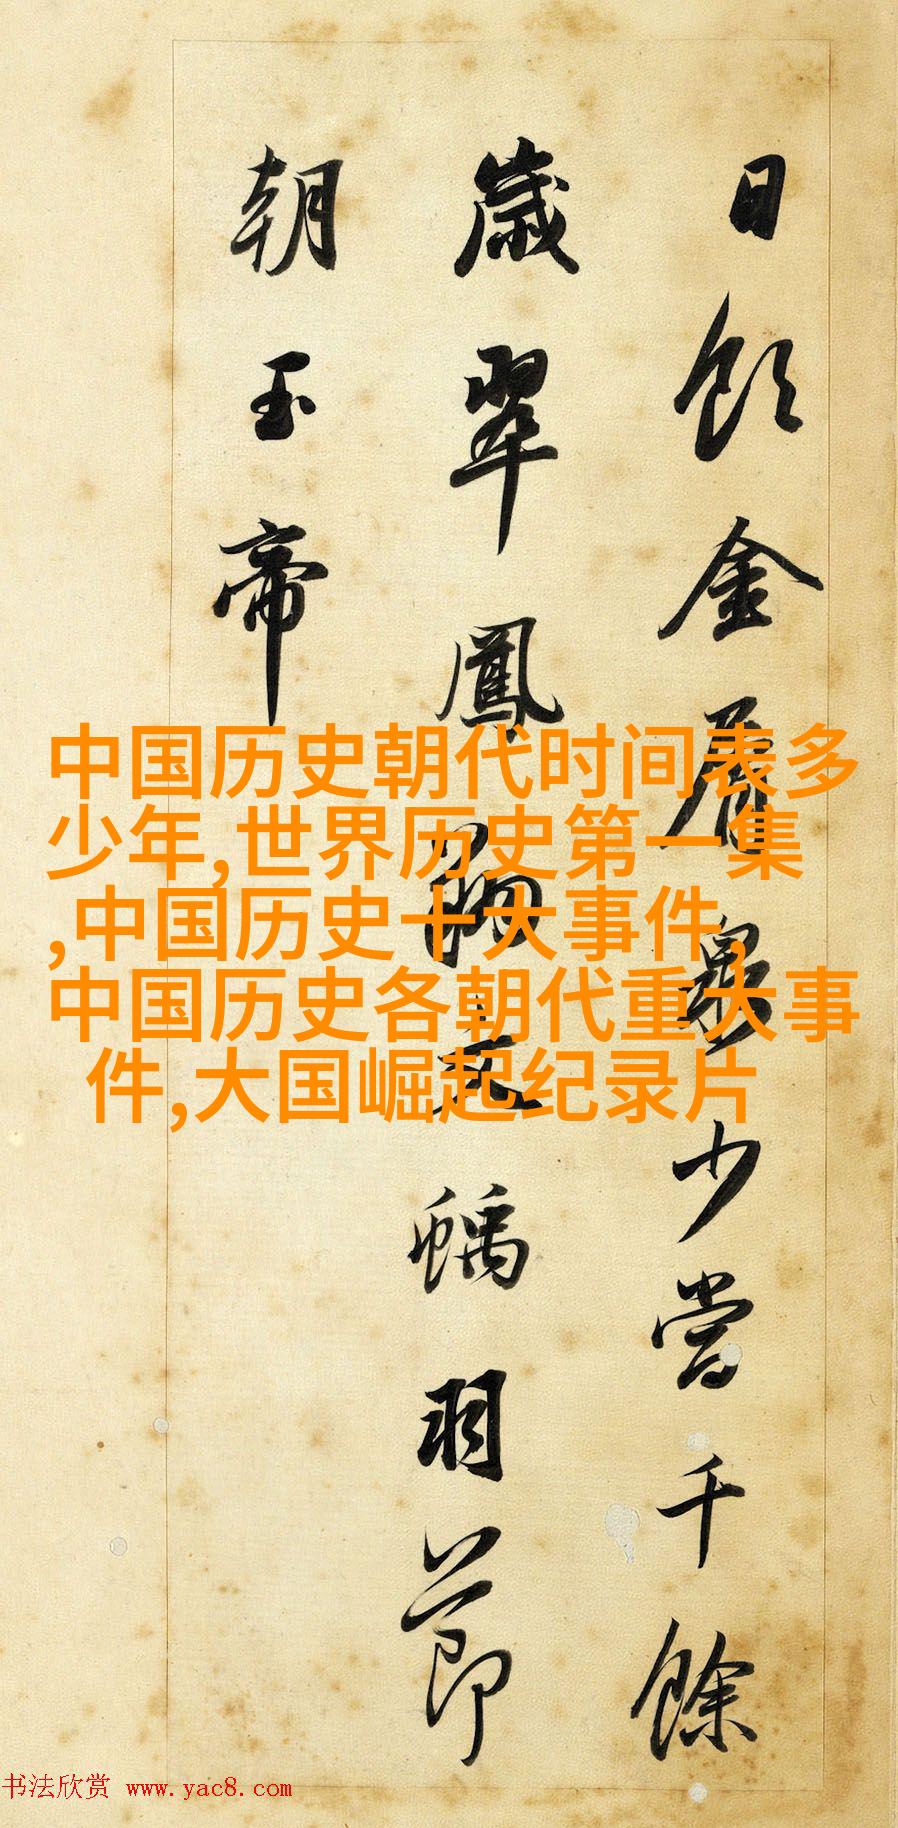 日飲金屑泉少當千餘
歲翠鳳翊文螭羽節
朝玉帝
中国历史朝代时间表多
少年,世界历史第一集
,中国历史十大事件,
中国历史各朝代重大事
件,大国崛起纪录片
书法欣赏 www.yac8.com